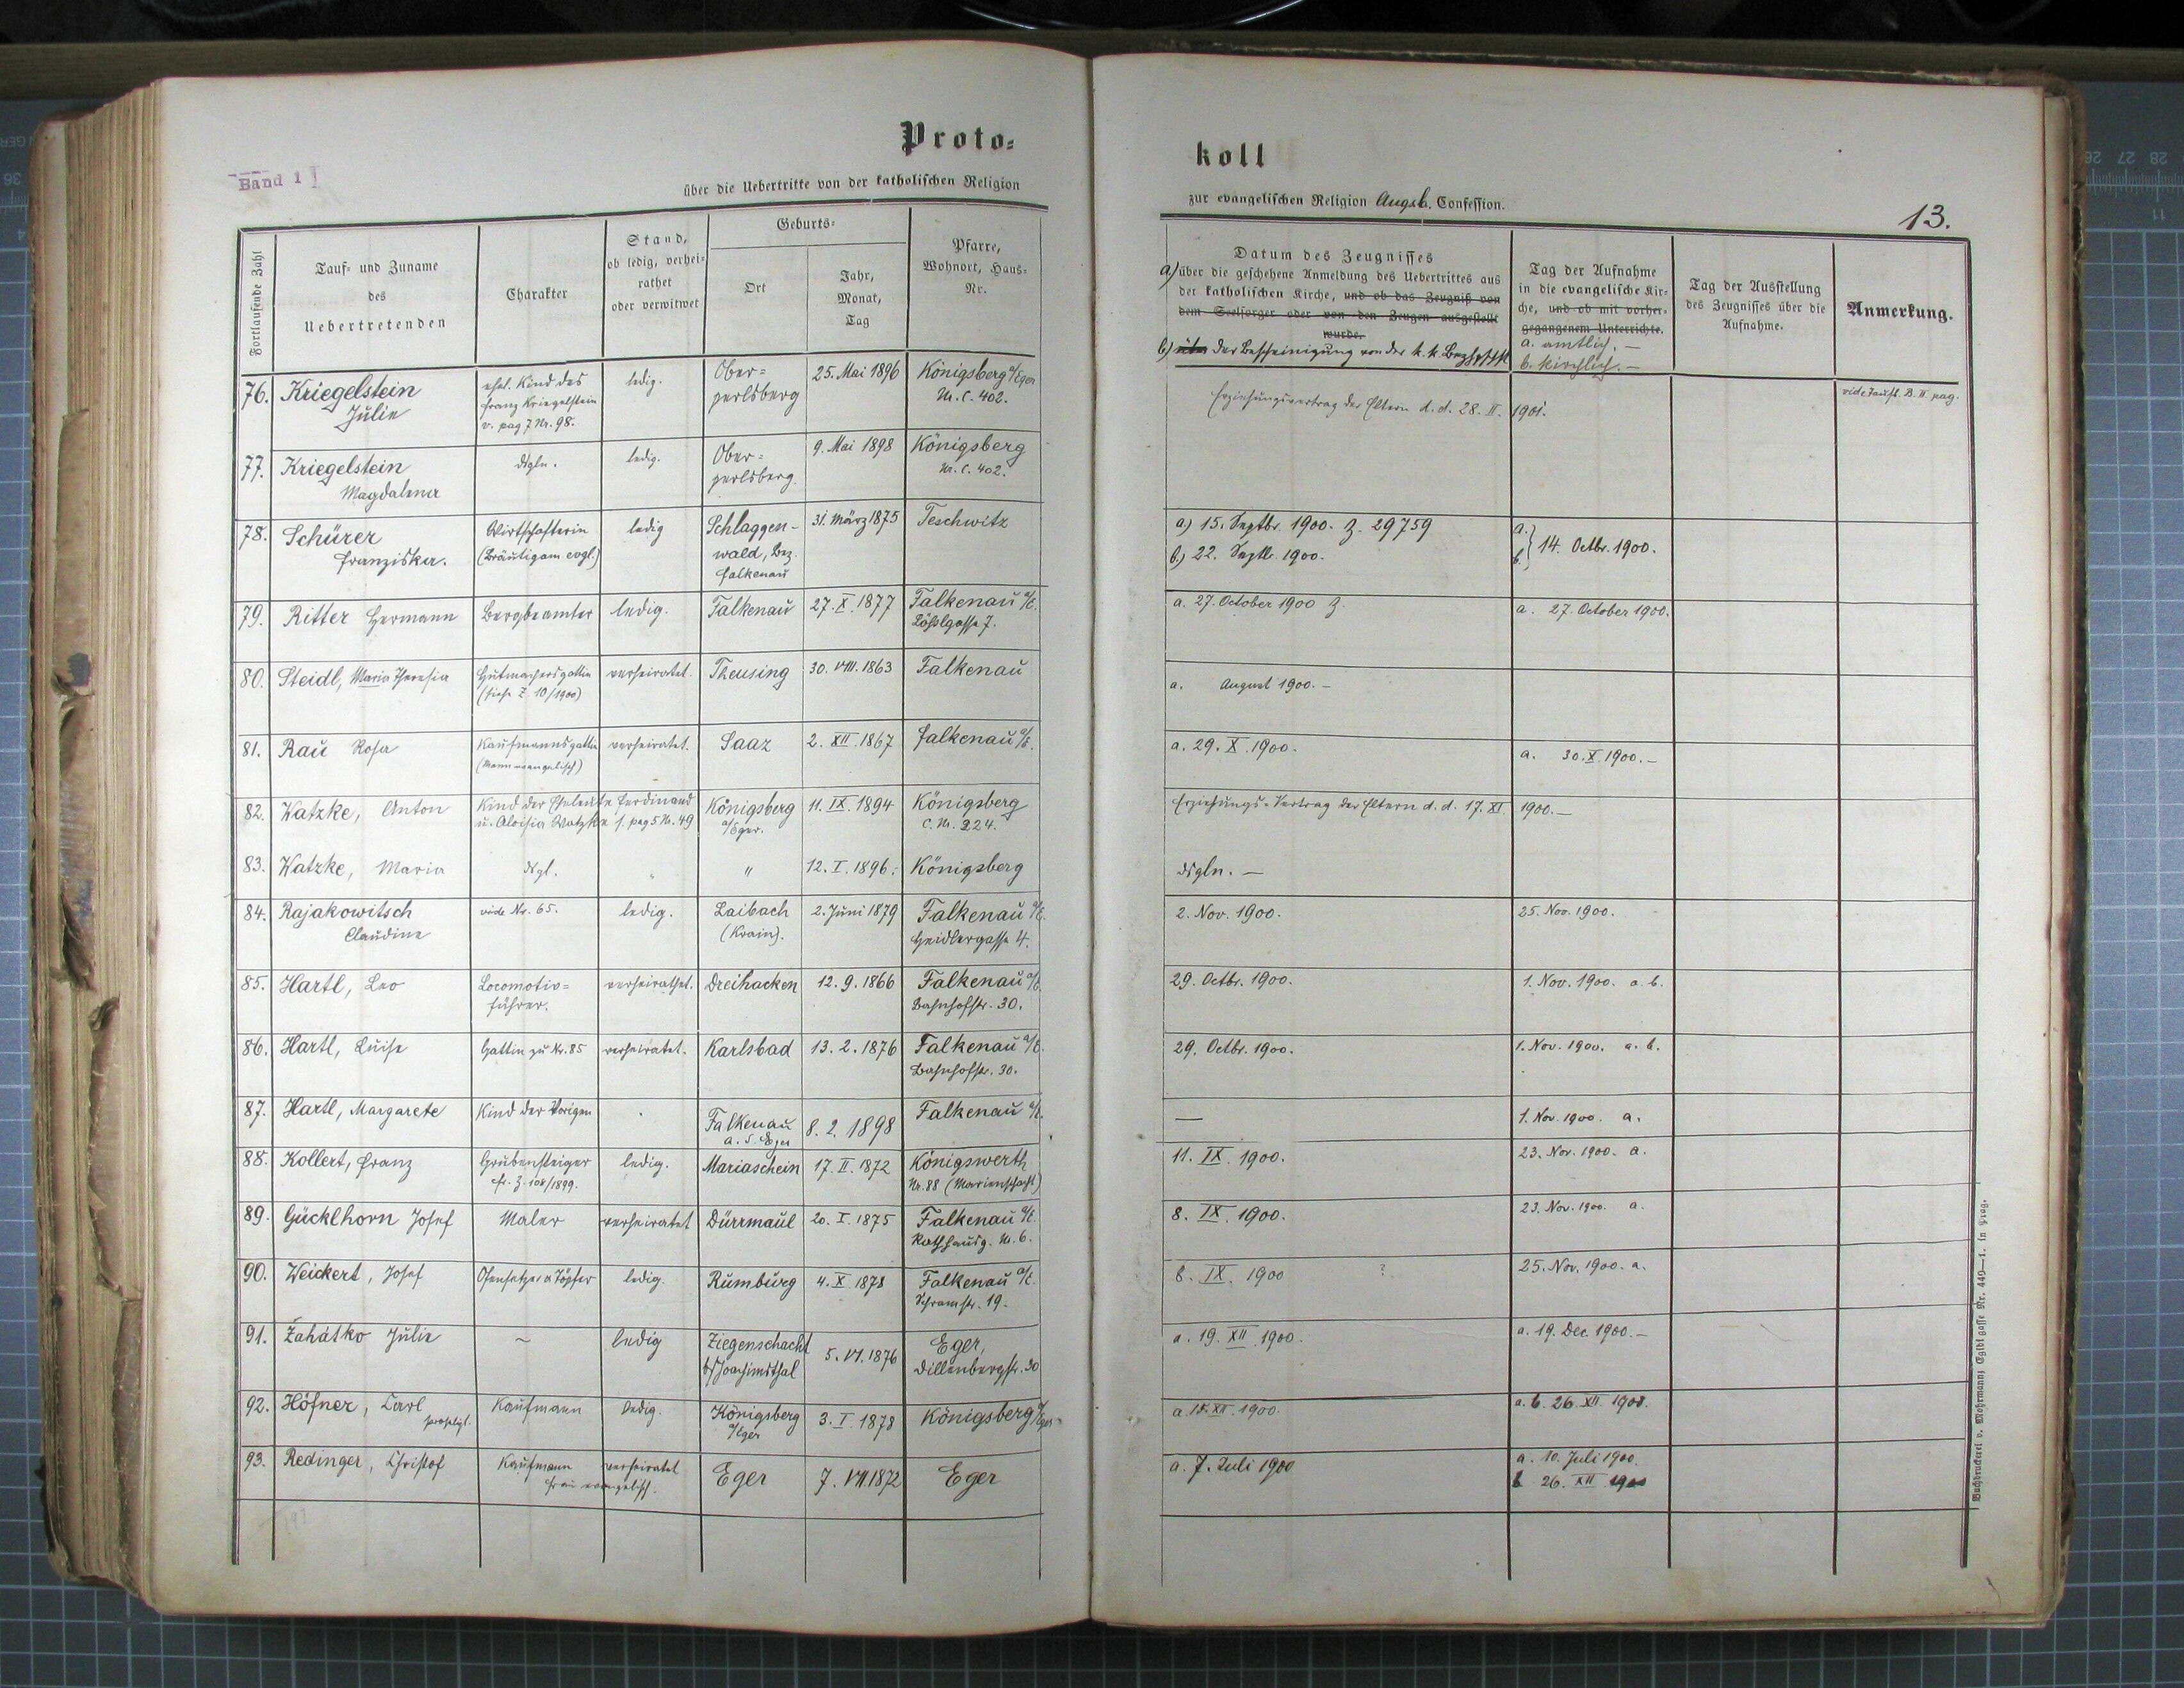 Band 1
Proto-
über die Uebertritte von der katholischen Religion
koll
zur evangelischen Religion Augsb. Confession.
13.
Fortlaufende Zahl
Tauf- und Zuname
des
Uebertretenden
Charakter
Stand,
ob ledig, verhei-
rathet
oder verwitwet
Geburts-
Ort
Jahr,
Monat,
Tag
Pfarre,
Wohnort, Haus-
Nr.
Datum des Zeugnisses
a) über die geschehene Anmeldung des Uebertrittes aus
der katholischen Kirche, und ob das Zeugniß von
dem Seelsorger oder von den Zeugen ausgestellt
wurde.
b) über der Bescheinigung von der k. k. Bezhptm
Tag der Aufnahme
in die evangelische Kir-
che, und ob mit vorher-
gegangenem Unterrichte.
a. amtlich. —
b. kirchlich. —
Tag der Ausstellung
des Zeugnisses über die
Aufnahme.
Anmerkung.
76. Kriegelstein
Julie
ehel. Kind des
Franz Kriegelstein
v. pag 7 Nr. 98.
ledig.
Ober-
perlsberg
25. Mai 1896
Königsberg a/Eger
N. C. 402.
Erziehungsvertrag der Eltern d. d. 28. II. 1901.
vide Taufb. B. II pag.
77. Kriegelstein
Magdalena
dtgln.
ledig.
Ober-
perlsberg.
9. Mai 1898
Königsberg
N. C. 402.
78. Schürer
Franziska.
Wirtschafterin
(Bräutigam evgl.)
ledig
Schlaggen-
wald, Bez.
Falkenau
31. März 1875
Teschwitz
a) 15. Septbr. 1900. Z. 29759
b.) 22. Septb. 1900.
a.
b. } 14. Octbr. 1900.
79. Ritter Hermann
Bergbeamter
ledig.
Falkenau
27. X. 1877
Falkenau a/E.
Lößlgasse 7.
a. 27. October 1900 Z.
a. 27. October 1900.
80. Steidl, Maria Theresia
Hutmachersgattin
(siehe Z. 10/1900)
verheiratet.
Theusing
30. VIII. 1863
Falkenau
a. August 1900. —
81. Rau Rosa
Kaufmannsgattin
(Mann evangelisch)
verheiratet.
Saaz
2. XII. 1867
Falkenau a/E.
a. 29. X. 1900.
a. 30. X. 1900. —
82. Watzke, Anton
Kind der Eheleute Ferdinand
u. Aloisia Watzke s. pag 5 Nr. 49
Königsberg
a/Eger.
11. IX. 1894
Königsberg
C. N. 224.
Erziehungs-Vertrag der Eltern d. d. 17. XI. 1900. —
83. Watzke, Maria
dtgl.
"
"
12. I. 1896.
Königsberg
dtgln. —
84. Rajakowitsch
Claudine
vide Nr. 65.
ledig.
Laibach
(Krain).
2. Juni 1879
Falkenau a/E.
Heidlergasse 4.
2. Nov. 1900.
25. Nov. 1900.
85. Hartl, Leo
Locomotiv-
führer.
verheirathet.
Dreihacken
12. 9. 1866
Falkenau a/E.
Bahnhofstr. 30.
29. Octbr. 1900.
1. Nov. 1900. a. b.
86. Hartl, Luise
Gattin zu Nr. 85
verheiratet.
Karlsbad
13. 2. 1876
Falkenau a/E.
Bahnhofstr. 30.
29. Octbr. 1900.
1. Nov. 1900. a. b.
87. Hartl, Margarete
Kind der Vorigen
Falkenau
a. d. Eger
8. 2. 1898
Falkenau a/E.
—
1. Nov. 1900. a.
88. Kollert, Franz
Grubensteiger
ledig.
Mariaschein
17. II. 1872
Königswerth
Nr. 88 (Marienschacht)
11. IX. 1900.
23. Nov. 1900. a.
89. Gücklhorn Josef
Maler
verheiratet
Dürrmaul
20. I. 1875
Falkenau a/E.
Rathhausg. N. 6.
8. IX. 1900.
23. Nov. 1900. a.
90. Weickert, Josef
Ofensetzer u. Töpfer
ledig.
Rumburg
4. X. 1878
Falkenau a/E.
Schramstr. 19.
8. IX. 1900
?
25. Nov. 1900. a.
91. Zahátko Julie
~
ledig
Ziegenschacht
b/Joachimsthal
5. VI. 1876
Eger,
Dillenbergstr. 30
a. 19. XII. 1900.
a. 19. Dec. 1900. —
92. Höfner, Carl
Kaufmann
ledig.
Königsberg
a/Eger
3. I. 1878
Königsberg a/Eger
a. 18. XII. 1900.
a. b. 26. XII. 1900.
93. Redinger, Christof
Kaufmann
Frau evangelisch.
verheiratet
Eger
7. VII. 1872
Eger
a. 7. Juli 1900
a. 10. Juli 1900.
b 26. XII 1900
Buchdruckerei v. Mohrmann, Egidigasse Nr. 449—1. in Prag.